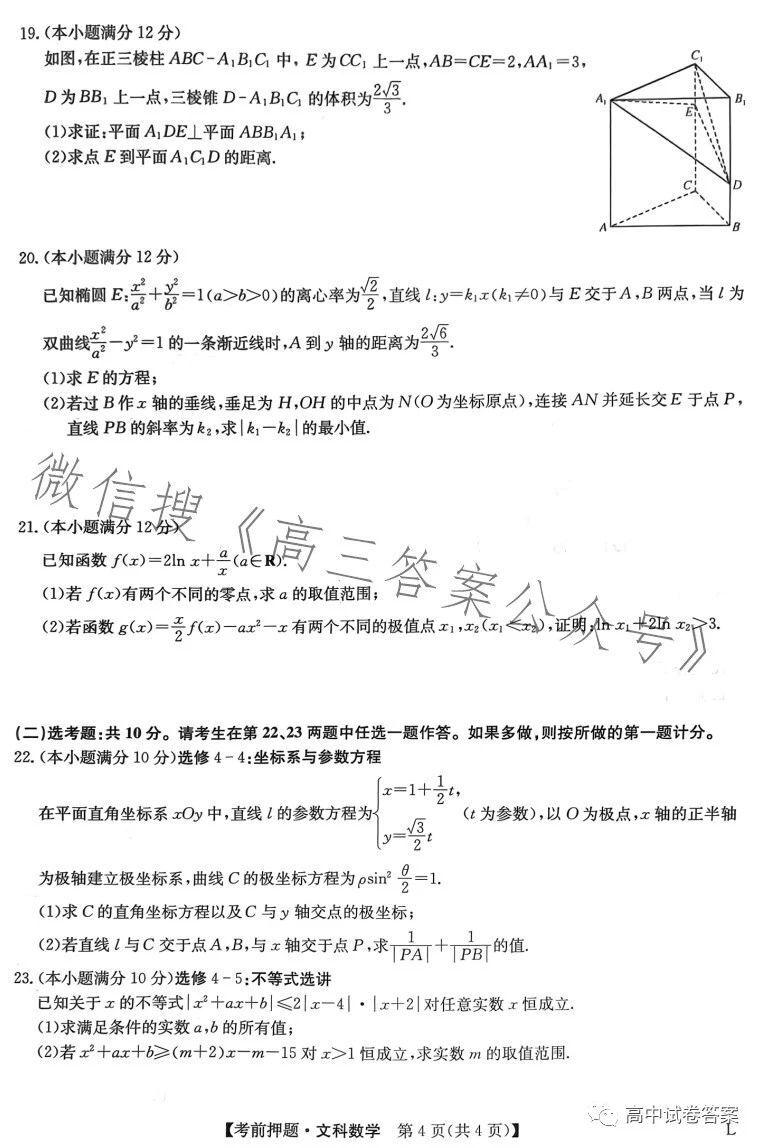 19.(本小题满分 12 分)
如图,在正三棱柱 ABC-A₁B₁C₁ 中, E 为 CC₁ 上一点,AB=CE=2,AA₁=3,
D 为 BB₁ 上一点,三棱锥 D-A₁B₁C₁ 的体积为 2√3/3.
(1)求证:平面 A₁DE⊥平面 ABB₁A₁;
(2)求点 E 到平面 A₁C₁D 的距离.
C₁
A₁
B₁
E
C
D
A
B
20.(本小题满分 12 分)
已知椭圆 E: x²/a²+y²/b²=1(a>b>0)的离心率为 √2/2,直线 l:y=k₁x(k₁≠0)与 E 交于 A,B 两点,当 l 为
双曲线 x²/a²-y²=1 的一条渐近线时,A 到 y 轴的距离为 2√6/3.
(1)求 E 的方程;
(2)若过 B 作 x 轴的垂线,垂足为 H,OH 的中点为 N(O 为坐标原点),连接 AN 并延长交 E 于点 P,
直线 PB 的斜率为 k₂,求|k₁-k₂|的最小值.
微信搜《高三答案公众号》
21.(本小题满分 12 分)
已知函数 f(x)=2ln x+a/x(a∈R).
(1)若 f(x)有两个不同的零点,求 a 的取值范围;
(2)若函数 g(x)=x/2 f(x)-ax²-x 有两个不同的极值点 x₁,x₂(x₁<x₂),证明:ln x₁+2ln x₂>3.
(二)选考题:共 10 分。请考生在第 22、23 两题中任选一题作答。如果多做,则按所做的第一题计分。
22.(本小题满分 10 分)选修 4-4:坐标系与参数方程
在平面直角坐标系 xOy 中,直线 l 的参数方程为{x=1+1/2 t, y=√3/2 t (t 为参数),以 O 为极点,x 轴的正半轴
为极轴建立极坐标系,曲线 C 的极坐标方程为 ρsin² θ/2=1.
(1)求 C 的直角坐标方程以及 C 与 y 轴交点的极坐标;
(2)若直线 l 与 C 交于点 A,B,与 x 轴交于点 P,求 1/|PA|+1/|PB| 的值.
23.(本小题满分 10 分)选修 4-5:不等式选讲
已知关于 x 的不等式|x²+ax+b|≤2|x-4|·|x+2|对任意实数 x 恒成立.
(1)求满足条件的实数 a,b 的所有值;
(2)若 x²+ax+b≥(m+2)x-m-15 对 x>1 恒成立,求实数 m 的取值范围.
高中试卷答案
【考前押题·文科数学 第 4 页(共 4 页)】 L